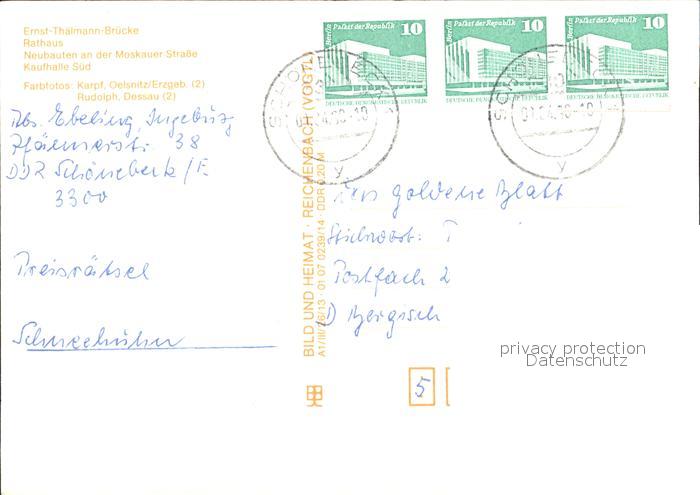 Ernst-Thälmann-Brücke
Rathaus
Neubauten an der Moskauer Straße
Kaufhalle Süd
Farbfotos: Karpf, Oelsnitz/Erzgeb. (2)
Rudolph, Dessau (2)
Abs. Ebeling, Ingeburg
38
DDR Schönebeck/E
3300
Preisrätsel
Schneehuhn
BILD UND HEIMAT · REICHENBACH (VOGTL)
A1/III/26/13 · 01 07 0239/14 · DDR 0,20 M
Berlin Palast der Republik 10
DEUTSCHE DEMOKRATISCHE REPUBLIK
Berlin Palast der Republik 10
DEUTSCHE DEMOKRATISCHE REPUBLIK
Berlin Palast der Republik 10
DEUTSCHE DEMOKRATISCHE REPUBLIK
y
y
Das goldene Blatt
Stichwort: T
Postfach 2
D Bergisch
5
privacy protection
Datenschutz